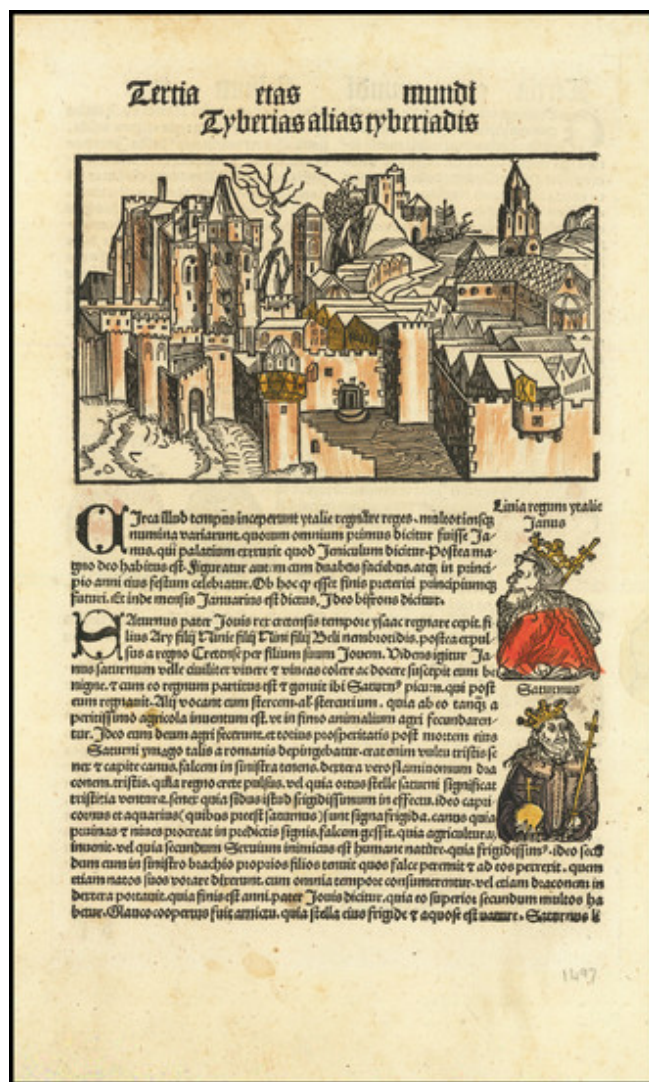 Tertia etas mundi
Tyberias alias tyberiadis
CIrca illud tempus inceperunt ytalie regnare reges. multotiensq;
numina variarunt. quorum omnium primus dicitur fuisse Ja-
nus. qui palatium exeruit quod Jeniculum dicitur. Postea ma-
gno deo habitus est. Figuratur autem cum duabus faciebus. atq; in princi-
pio anni eius festum celebratur. Ob hoc q esset finis preteriti principiumq;
futuri. Et inde mensis Januarius est dictus. Ideo bifrons dicitur.
Linia regum ytalie
Janus
SAturnus pater Jouis rex cretensis tempore ysaac regnare cepit. fi
lius Ary filij Ninie filij Nini filij Beli nembrotidis. postea expul-
sus a regno Cretense per filium suum Jouem. Videns igitur Ja-
nus saturnum velle ciuiliter viuere et vineas colere ac docere suscepit eum be
nigne. et cum eo regnum partitus est et genuit ibi Saturn9 picum. qui post
eum regnauit. Alij vocant eum stercem. al' stercutium. quia ab eo tanq̄ a
peritissimo agricola inuentum est. vt in fimo animalium agri fecundaren-
tur. Ideo eum deum agri fecerunt. et totius prosperitatis post mortem eius
Saturnus
Saturni ymago talis a romanis depingebatur. erat enim vultu tristis se
nex et capite canus. falcem in sinistra tenens. dextera vero flammonium dra
conem. tristis. quia regno crete pulsus. vel quia ortus stelle saturni significat
tristitia ventura. senex quia sidus istud frigidissimum in effectu. ideo capri-
cornus et aquarius (quibus preest saturnus) sunt signa frigida. canus quia
pruinas et niues procreat in predictis signis. falcem gessit. quia agriculturam
inuenit. vel quia secundum Seruium inimicus est humane nature. quia frigidissim9. ideo secu
dum eum in sinistro brachio proprios filios tenuit quos falce peremit et ad eos perrexit. quem
etiam natos suos vorare dixerunt. cum omnia tempore consumerentur. vel etiam draconem in
dextera portauit. quia finis est anni. pater Jouis dicitur. quia eo superior secundum multos ha
betur. Glauco coopertus fuit amictu. quia stella eius frigide et aquose est nature. Saturnus li
1497